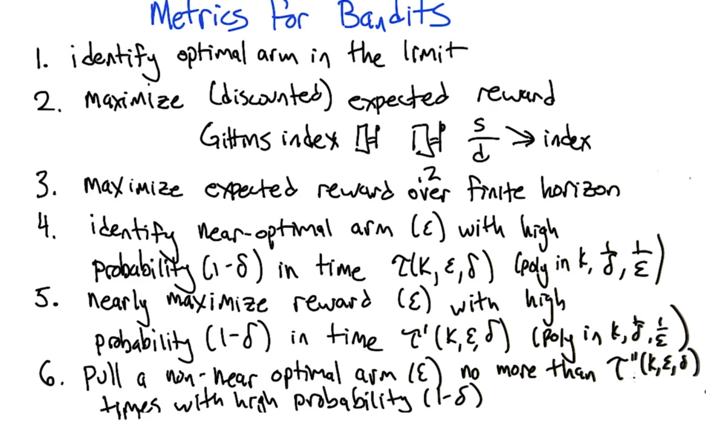 Metrics for Bandits
1. identify optimal arm in the limit
2. maximize (discounted) expected reward
Gittins index s/d → index
3. maximize expected reward over finite horizon
.2
4. identify near-optimal arm (ε) with high
probability (1-δ) in time τ(k, ε, δ) (poly in k, 1/δ, 1/ε)
5. nearly maximize reward (ε) with high
probability (1-δ) in time τ'(k, ε, δ) (poly in k, 1/δ, 1/ε)
6. Pull a non-near optimal arm (ε) no more than τ''(k, ε, δ)
times with high probability (1-δ)